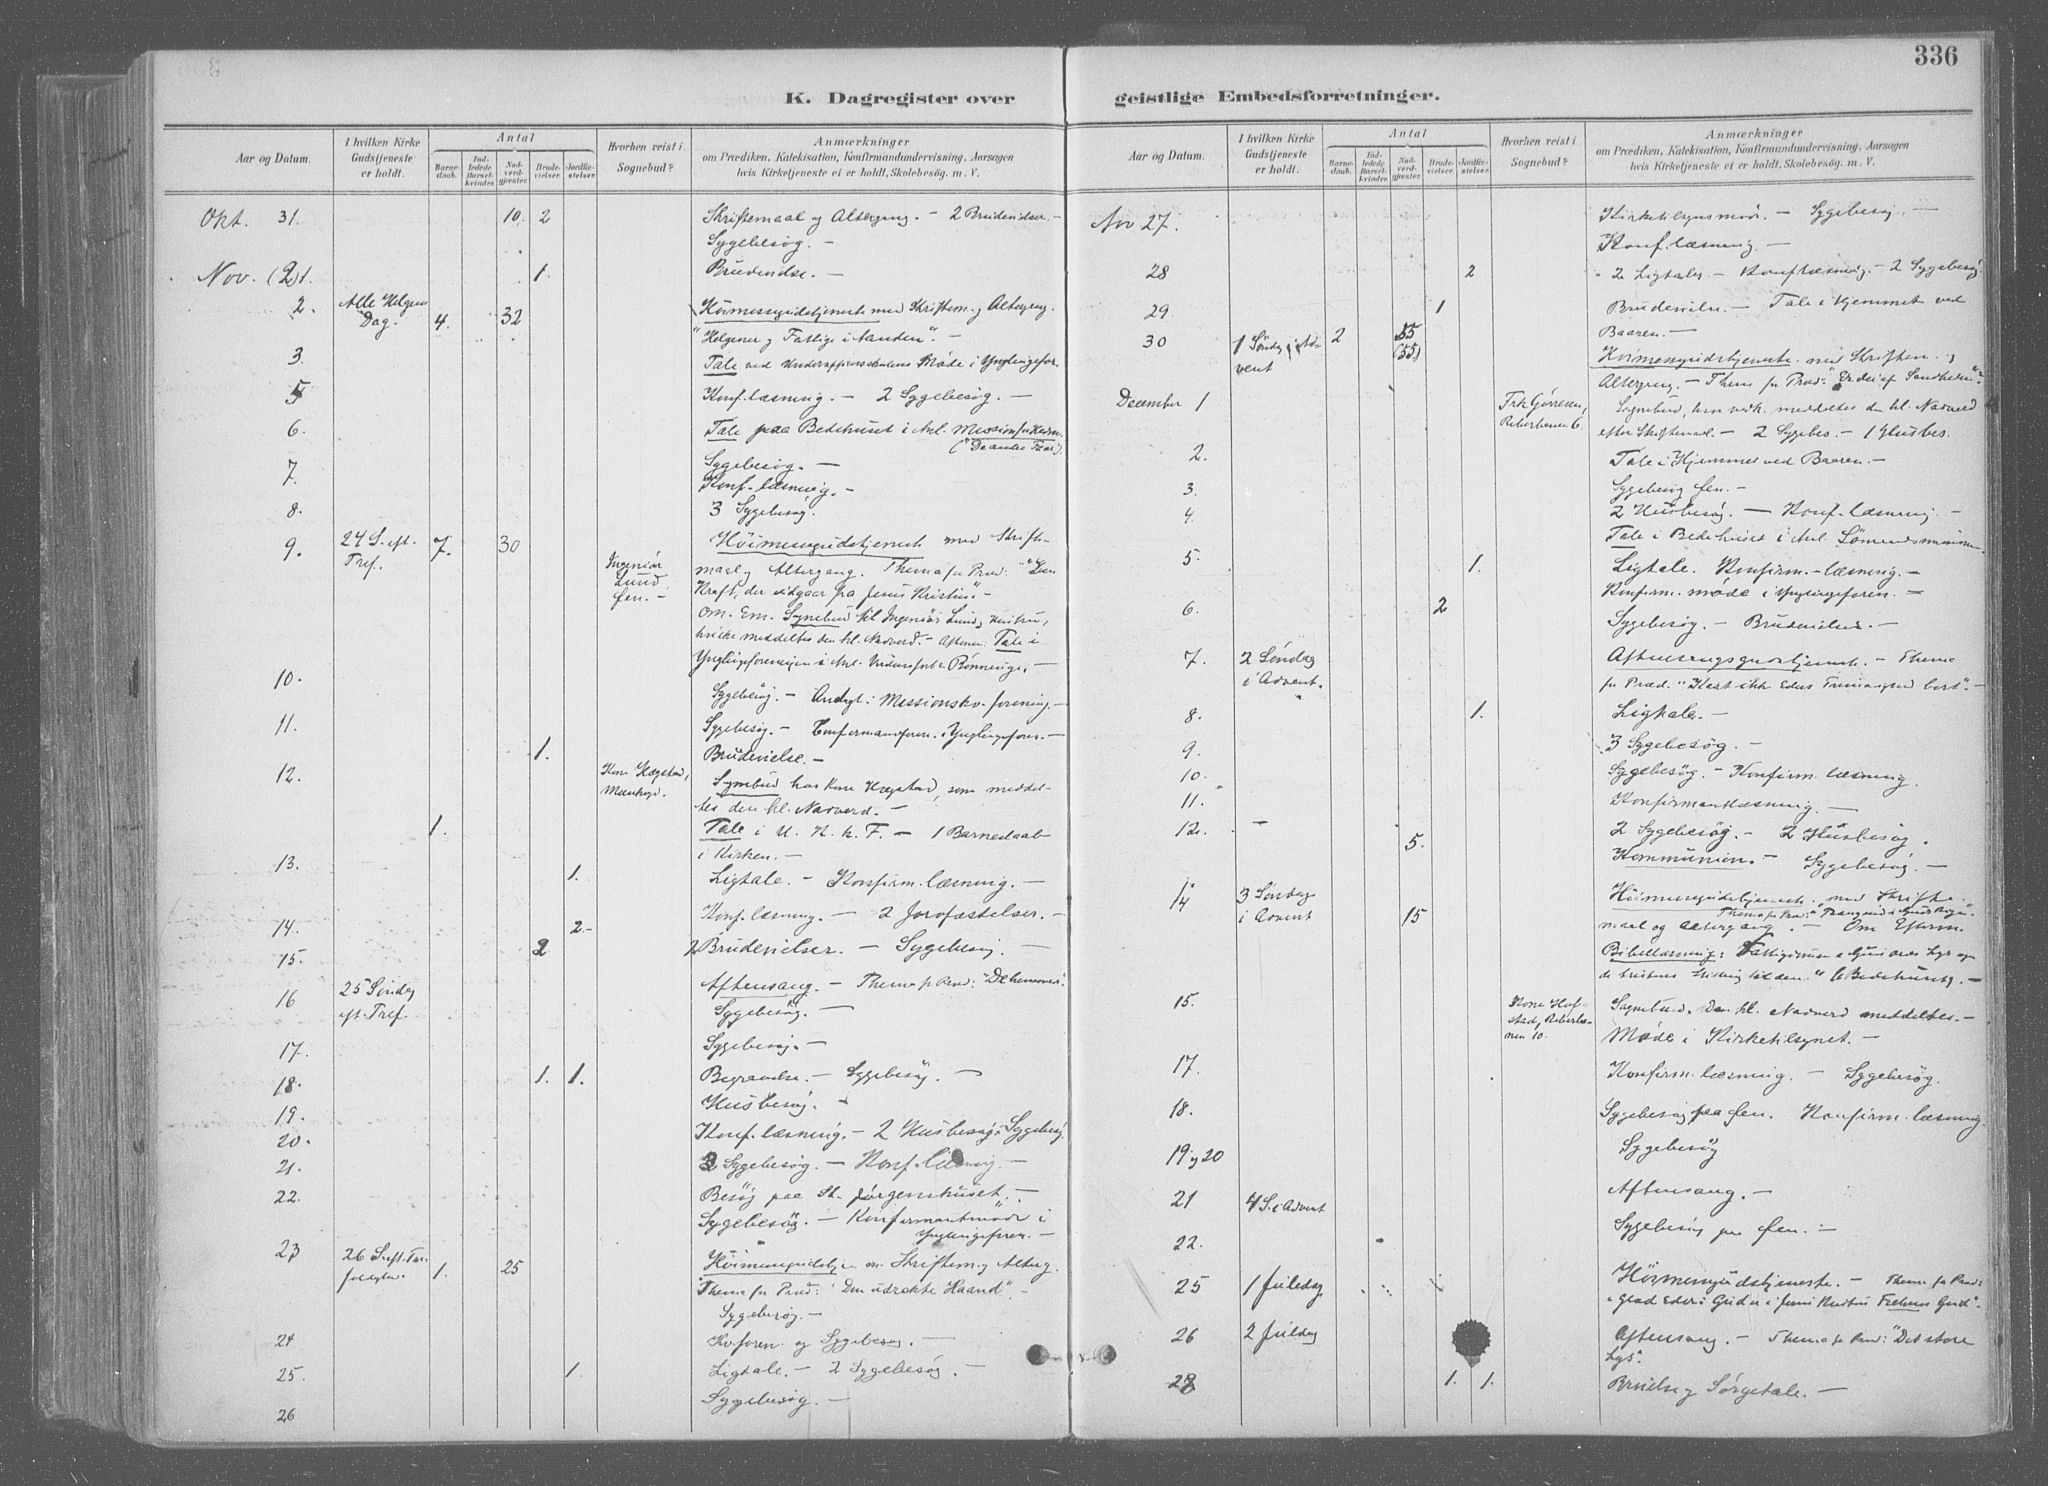 336
K. Dagregister over geistlige Embedsforretninger.
Aar og Datum. I hvilken Kirke Gudstjeneste er holdt. Antal Barnedaab. Indledede Barselkvinder. Nadverdgjæster. Brudevielser. Jordfæstelser. Hvorhen reist i Sognebud? Anmærkninger om Prædiken, Katekisation, Konfirmandundervisning, Aarsagen hvis Kirketjeneste ei er holdt, Skolebesög. m. V.
Okt. 31. 10. 2 Skriftemaal og Altergang. - 2 Brudevielser. -
Sygebesøg. -
Nov. (2) 1. 1. Brudevielse. -
2. Alle Helgens Dag. 4. 32 Höimessegudstjeneste med Skriftem. og Altergang.
"Helgener og Fattige i Aanden". -
3. Tale ved Møde i Ynglingefor.
5 Konf. læsning. - 2 Sygebesøg. -
6. Tale paa Bedehuset i Anl. Mission
7. Sygebesøg. -
Konf. læsning. -
8. 3 Sygebesøg.
9. 24 S. eft. Tref. 7. 30 Ingeniør Lund, Øen. - Höimessegudstjeneste med Skrift-
maal og Altergang. Thema for Præd: "Den
Kraft, der udgaar fra Jesus Kristus" -
Om. Em. Sognebud til Ingeniør Lund, Hustru,
hvilke meddeltes den hl. Nadverd. - Aftenen. Tale i
Ynglingeforeningen i Anl.
10. Sygebesøg. - Andagt i Missionskv. forening. -
11. Sygebesøg. - Konfirmandforen. i Ynglingeforen. -
1. Brudevielse. -
12. Kone Hægstad, Sognebud hos Kone Hægstad, som meddel-
tes den hl. Nadverd. -
1. Tale i U. K. k. F. - 1 Barnedaab
i Kirken. -
13. 1. Ligtale. - Konfirm. læsning. -
14. 2. - Konf. læsning. - 2 Jordfæstelser. -
15. 2 2 Brudevielser. - Sygebesøg. -
16 25 Søndag eft. Tref. Aftensang. - Thema for Præd:
Sygebesøg. -
17. Sygebesøg. -
18. 1. 1. Begravelse. - Sygebesøg. -
19. Husbesøg. -
20. Konf. læsning. - 2 Husbesøg. Sygebesøg.
21. 3 Sygebesøg. - Konf. læsning. -
22. Besøg paa St. Jørgenshuset. -
Sygebesøg. - Konfirmantmøde i
Ynglingeforen. -
23 26 S. eft. Tre- 1. 25 Höimessegudstj. m. Skriftem. og Alterg.
Thema for Præd: "Den udrakte Haand". -
Sygebesøg. -
24 Kv. foren. og Sygebesøg. -
25. 1 Ligtale. - 2 Sygebesøg. -
26 Sygebesøg. -
geistlige Embedsforretninger.
Aar og Datum. I hvilken Kirke Gudstjeneste er holdt. Antal Barnedaab. Indledede Barselkvinder. Nadverdgjæster. Brudevielser. Jordfæstelser. Hvorhen reist i Sognebud? Anmærkninger om Prædiken, Katekisation, Konfirmandundervisning, Aarsagen hvis Kirketjeneste ei er holdt, Skolebesög. m. V.
Nov 27. Kirketilsynsmøde. - Sygebesøg. -
Konf. læsning. -
28 2 2 Ligtaler. - Konf læsning. - 2 Sygebesøg
29. 1 Brudevielse. - Tale i Hjemmet ved
Baaren. -
30 1 Søndag i Advent 2 55 (55) Höimessegudstjeneste med Skriftem. og
Altergang. - Thema for Præd: "Er det af Sandheden"?
December 1 Sognebud, meddeltes den hl. Nadverd
efter Skriftemaal. - 2 Sygebes. - 1 Husbes.
2. Tale i Hjemmet ved Baaren. -
3. Sygebesøg Øen. -
4. 2 Husbesøg. - Konf. læsning. -
Tale i Bedehuset i Anl. Sømandsmissionen
5. 1. Ligtale. Konfirm.-læsning. -
Konfirm. møde i Ynglingeforen. -
6. 2 Sygebesøg. - Brudevielser. -
7. 2 Søndag i Advent. Aftensangsgudstjeneste. - Thema
for Præd. "Kast ikke Eders Frimodighed bort". -
8. 1. Ligtale. -
9. 3 Sygebesøg. -
10. Sygebesøg. - Konfirm. læsning.
11. Konfirmantlæsning. -
12. 2 Sygebesøg. - 2 Husbesøg.
5. Kommunion. - Sygebesøg. -
14 3 Søndag i Advent 15 Höimessegudstjeneste med Skrifte-
maal og Altergang. - Om Efterm.
Bibellæsning:
15. Kone Hofstad, Sognebud. Den hl. Nadverd meddeltes. -
Møde i Kirketilsynet. -
17. Konfirm. læsning. - Sygebesøg.
18. Sygebesøg paa Øen. Konfirm. læsning.
19 og 20 Sygebesøg
21 4 S. i Advent Aftensang. -
22. Sygebesøg paa Øen. -
25 1 Juledag Höimessegudstjeneste. - Thema for Præd:
26 2 Juledag Aftensang. - Thema for Præd: "Det store
Lys".
28 1. 1. Brudevielse og Sørgetale. -